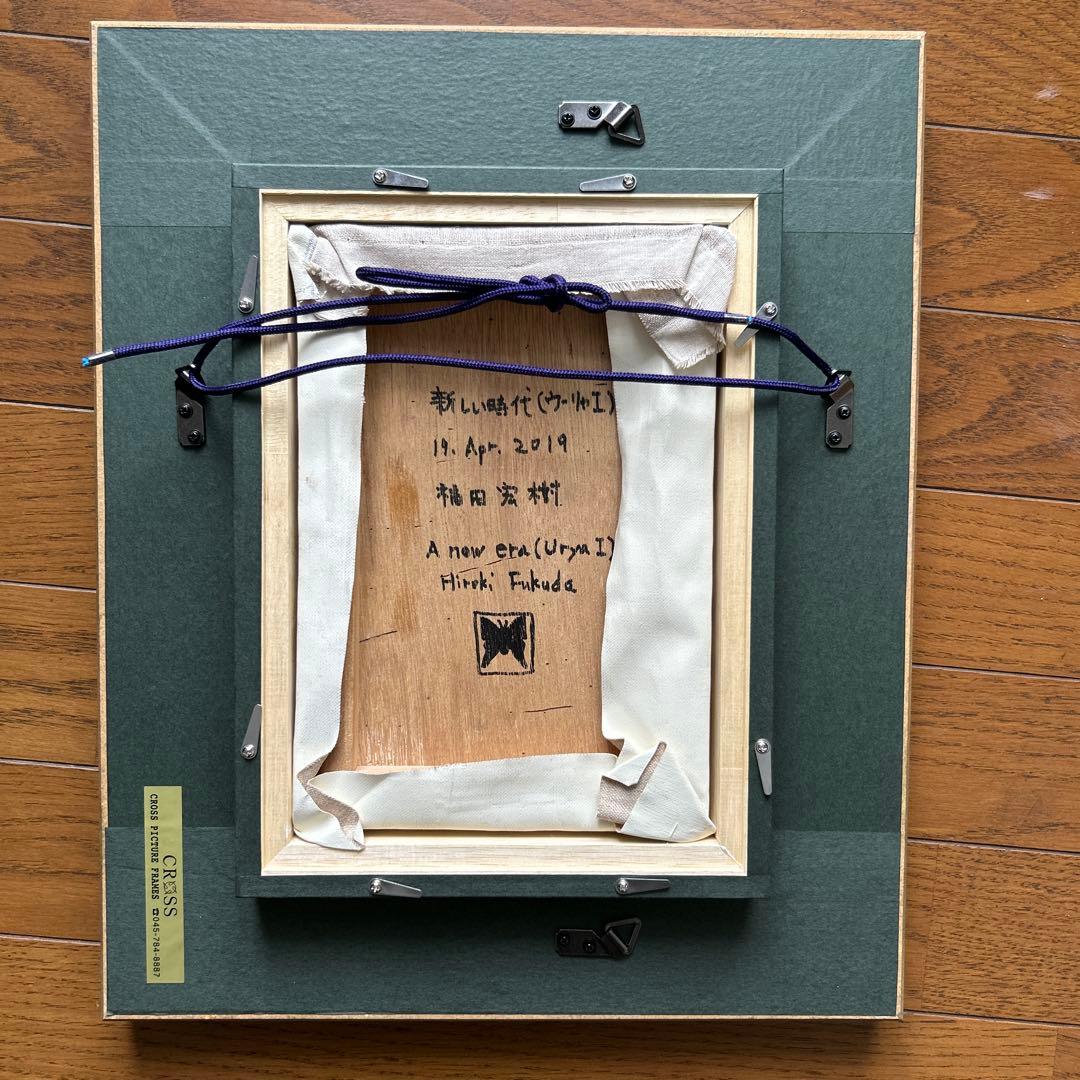 新しい時代(ウーリャI)
19. Apr. 2019
福田宏樹
A new era (Urya I)
Hiroki Fukuda
CROSS
CROSS PICTURE FRAMES ☎045-784-8887